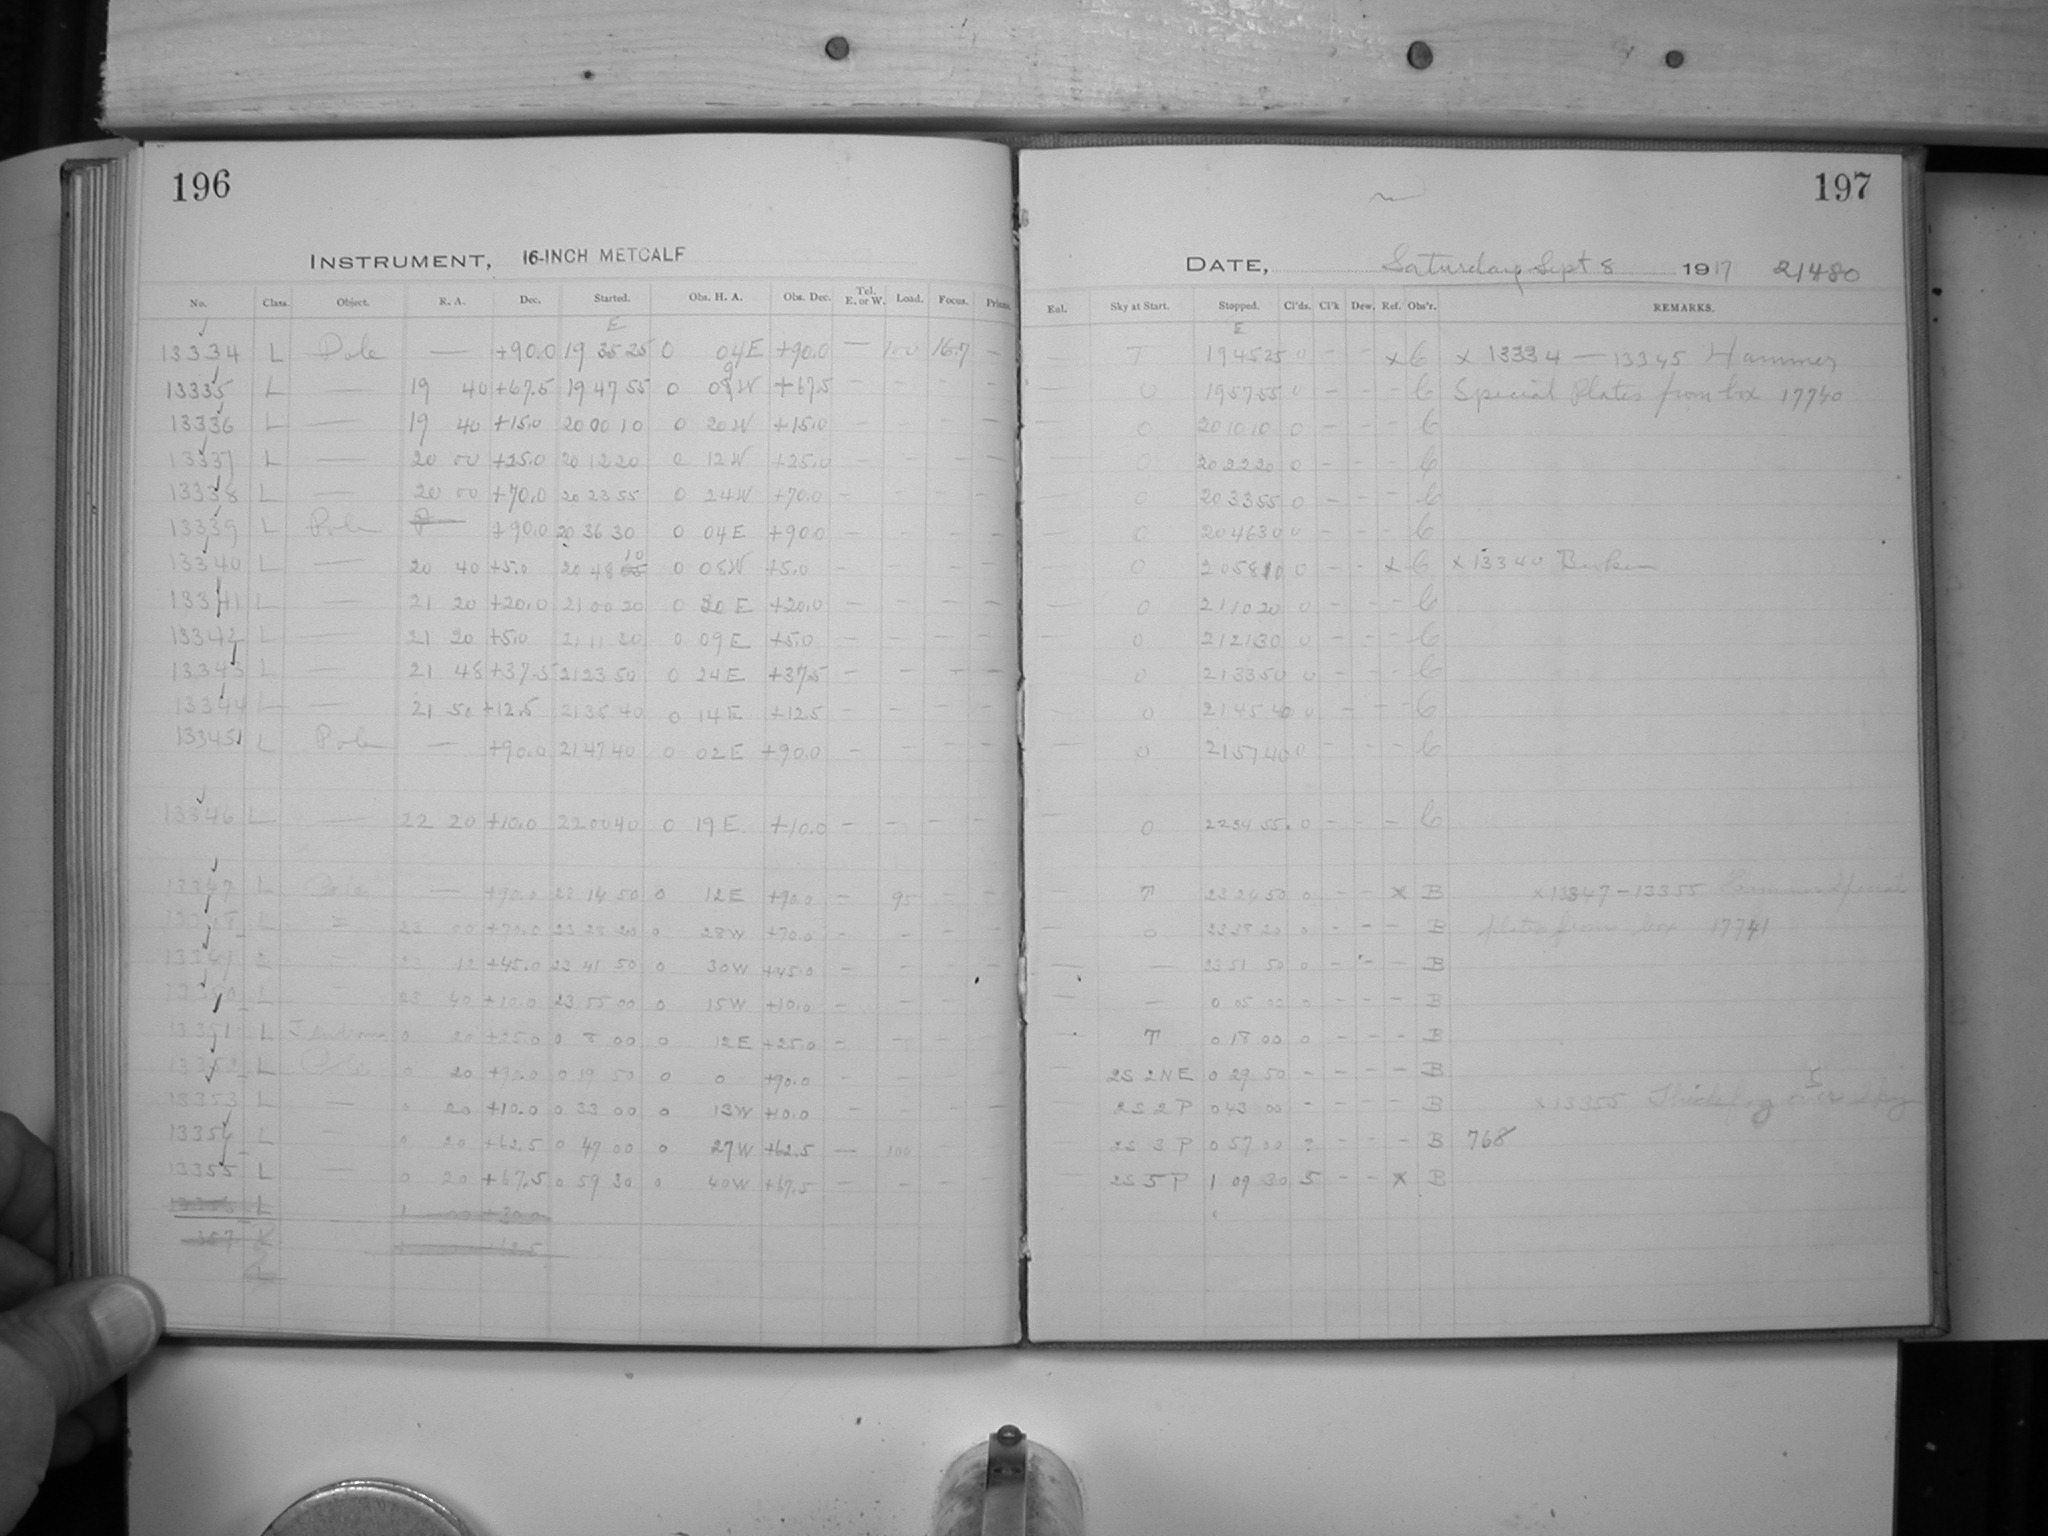 196
INSTRUMENT, 16-INCH METCALF
No. Class. Object. R. A. Dec. Started. Obs. H. A. Obs. Dec. Tel. E. or W. Load. Focus. Prism.
E
13334 L Pole — +90.0 19 35 25 0 04 E +90.0 — 100 16.7 —
13335 L — 19 40 +67.5 19 47 55 0 W +67.5 — — — —
13336 L — 19 40 +15.0 20 00 10 0 20 W +15.0 — — — —
13337 L — 20 00 +25.0 20 12 20 0 12 W +25.0 — — — —
13338 L — 20 00 +70.0 20 23 55 0 24 W +70.0 — — — —
13339 L Pole +90.0 20 36 30 0 04 E +90.0 — — — —
13340 L — 20 40 +5.0 20 48 10 0 08 W +5.0 — — — —
13341 L — 21 20 +20.0 21 00 20 0 20 E +20.0 — — — —
13342 L — 21 20 +5.0 21 11 30 0 09 E +5.0 — — — —
13343 L — 21 48 +37.5 21 23 50 0 24 E +37.5 — — — —
13344 L — 21 50 +12.5 21 35 40 0 14 E +12.5 — — — —
13345 L Pole — +90.0 21 47 40 0 02 E +90.0 — — — —
13346 L — 22 20 +10.0 22 00 40 0 19 E +10.0 — — — —
13347 L Pole — +90.0 23 14 50 0 12 E +90.0 — 95 — —
13348 L = 23 00 +70.0 23 28 20 0 28 W +70.0 — — — —
13349 L — 23 12 +45.0 23 41 50 0 30 W +45.0 — — — —
13350 L — 23 40 +10.0 23 55 00 0 15 W +10.0 — — —
13351 L 0 20 +25.0 0 8 00 0 12 E +25.0 — — — —
13352 L Pole 0 20 +90.0 0 19 50 0 0 +90.0 — — —
13353 L — 0 20 +10.0 0 33 00 0 13 W +10.0 — — — —
13354 L — 0 20 +62.5 0 47 00 0 27 W +62.5 — 100
13355 L — 0 20 +67.5 0 59 30 0 40 W +67.5 — — — —
13356 L 1 00 +30.0
357 L
197
DATE, Saturday Sept 8 1917 21480
Eul. Sky at Start. Stopped. Cl'ds. Cl'k Dew. Ref. Obs'r. REMARKS.
E
T 19 45 25 0 — — x 6 x 13334 — 13345 Hammer
0 19 57 55 0 — — — 6 Special Plates from box 17740
0 20 10 10 0 — — — 6
0 20 22 20 0 — — — 6
0 20 33 55 0 — — — 6
0 20 46 30 0 — — — 6
0 20 58 10 0 — — x 6 x 13340
0 21 10 20 0 — — — 6
0 21 21 30 0 — — — 6
0 21 33 50 0 — — — 6
0 21 45 40 0 — — — 6
0 21 57 40 0 — — — 6
0 22 34 55 0 — — — 6
T 23 24 50 0 — — x B x 13347 – 13355 Hammer Special
0 23 38 20 0 — — — B plates from box 17741
— 23 51 50 0 — — — B
— 0 05 00 0 — — — B
T 0 18 00 0 — — — B
2S 2NE 0 29 50 — — — — B
2S 2 P 0 43 00 — — — — B x 13355 Thick fog over sky
2S 3 P 0 57 00 ? — — — B 768
2S 5 P 1 09 30 5 — — x B